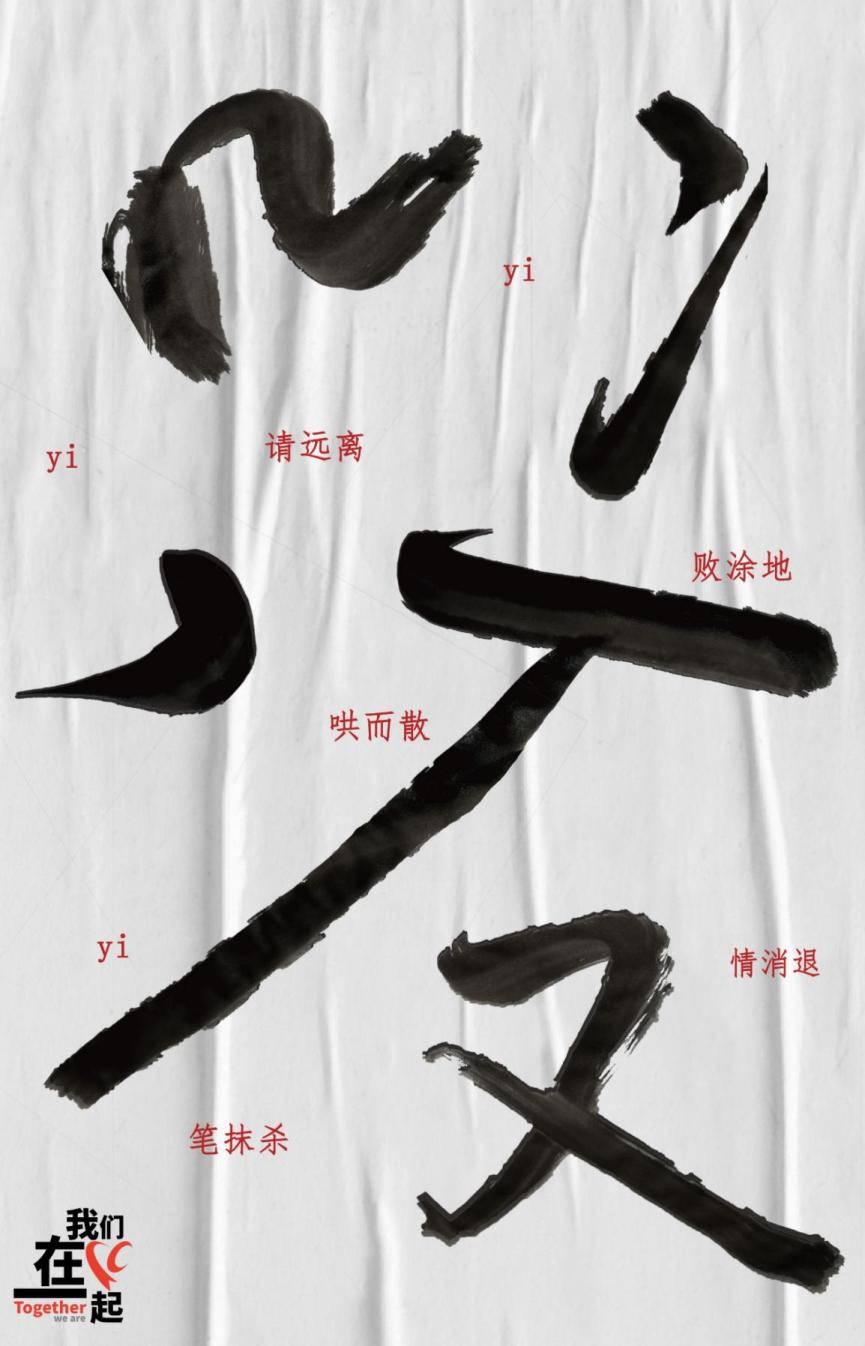 疫
yi
yi
请远离
败涂地
哄而散
yi
情消退
笔抹杀
我们
在
起
Together
we are